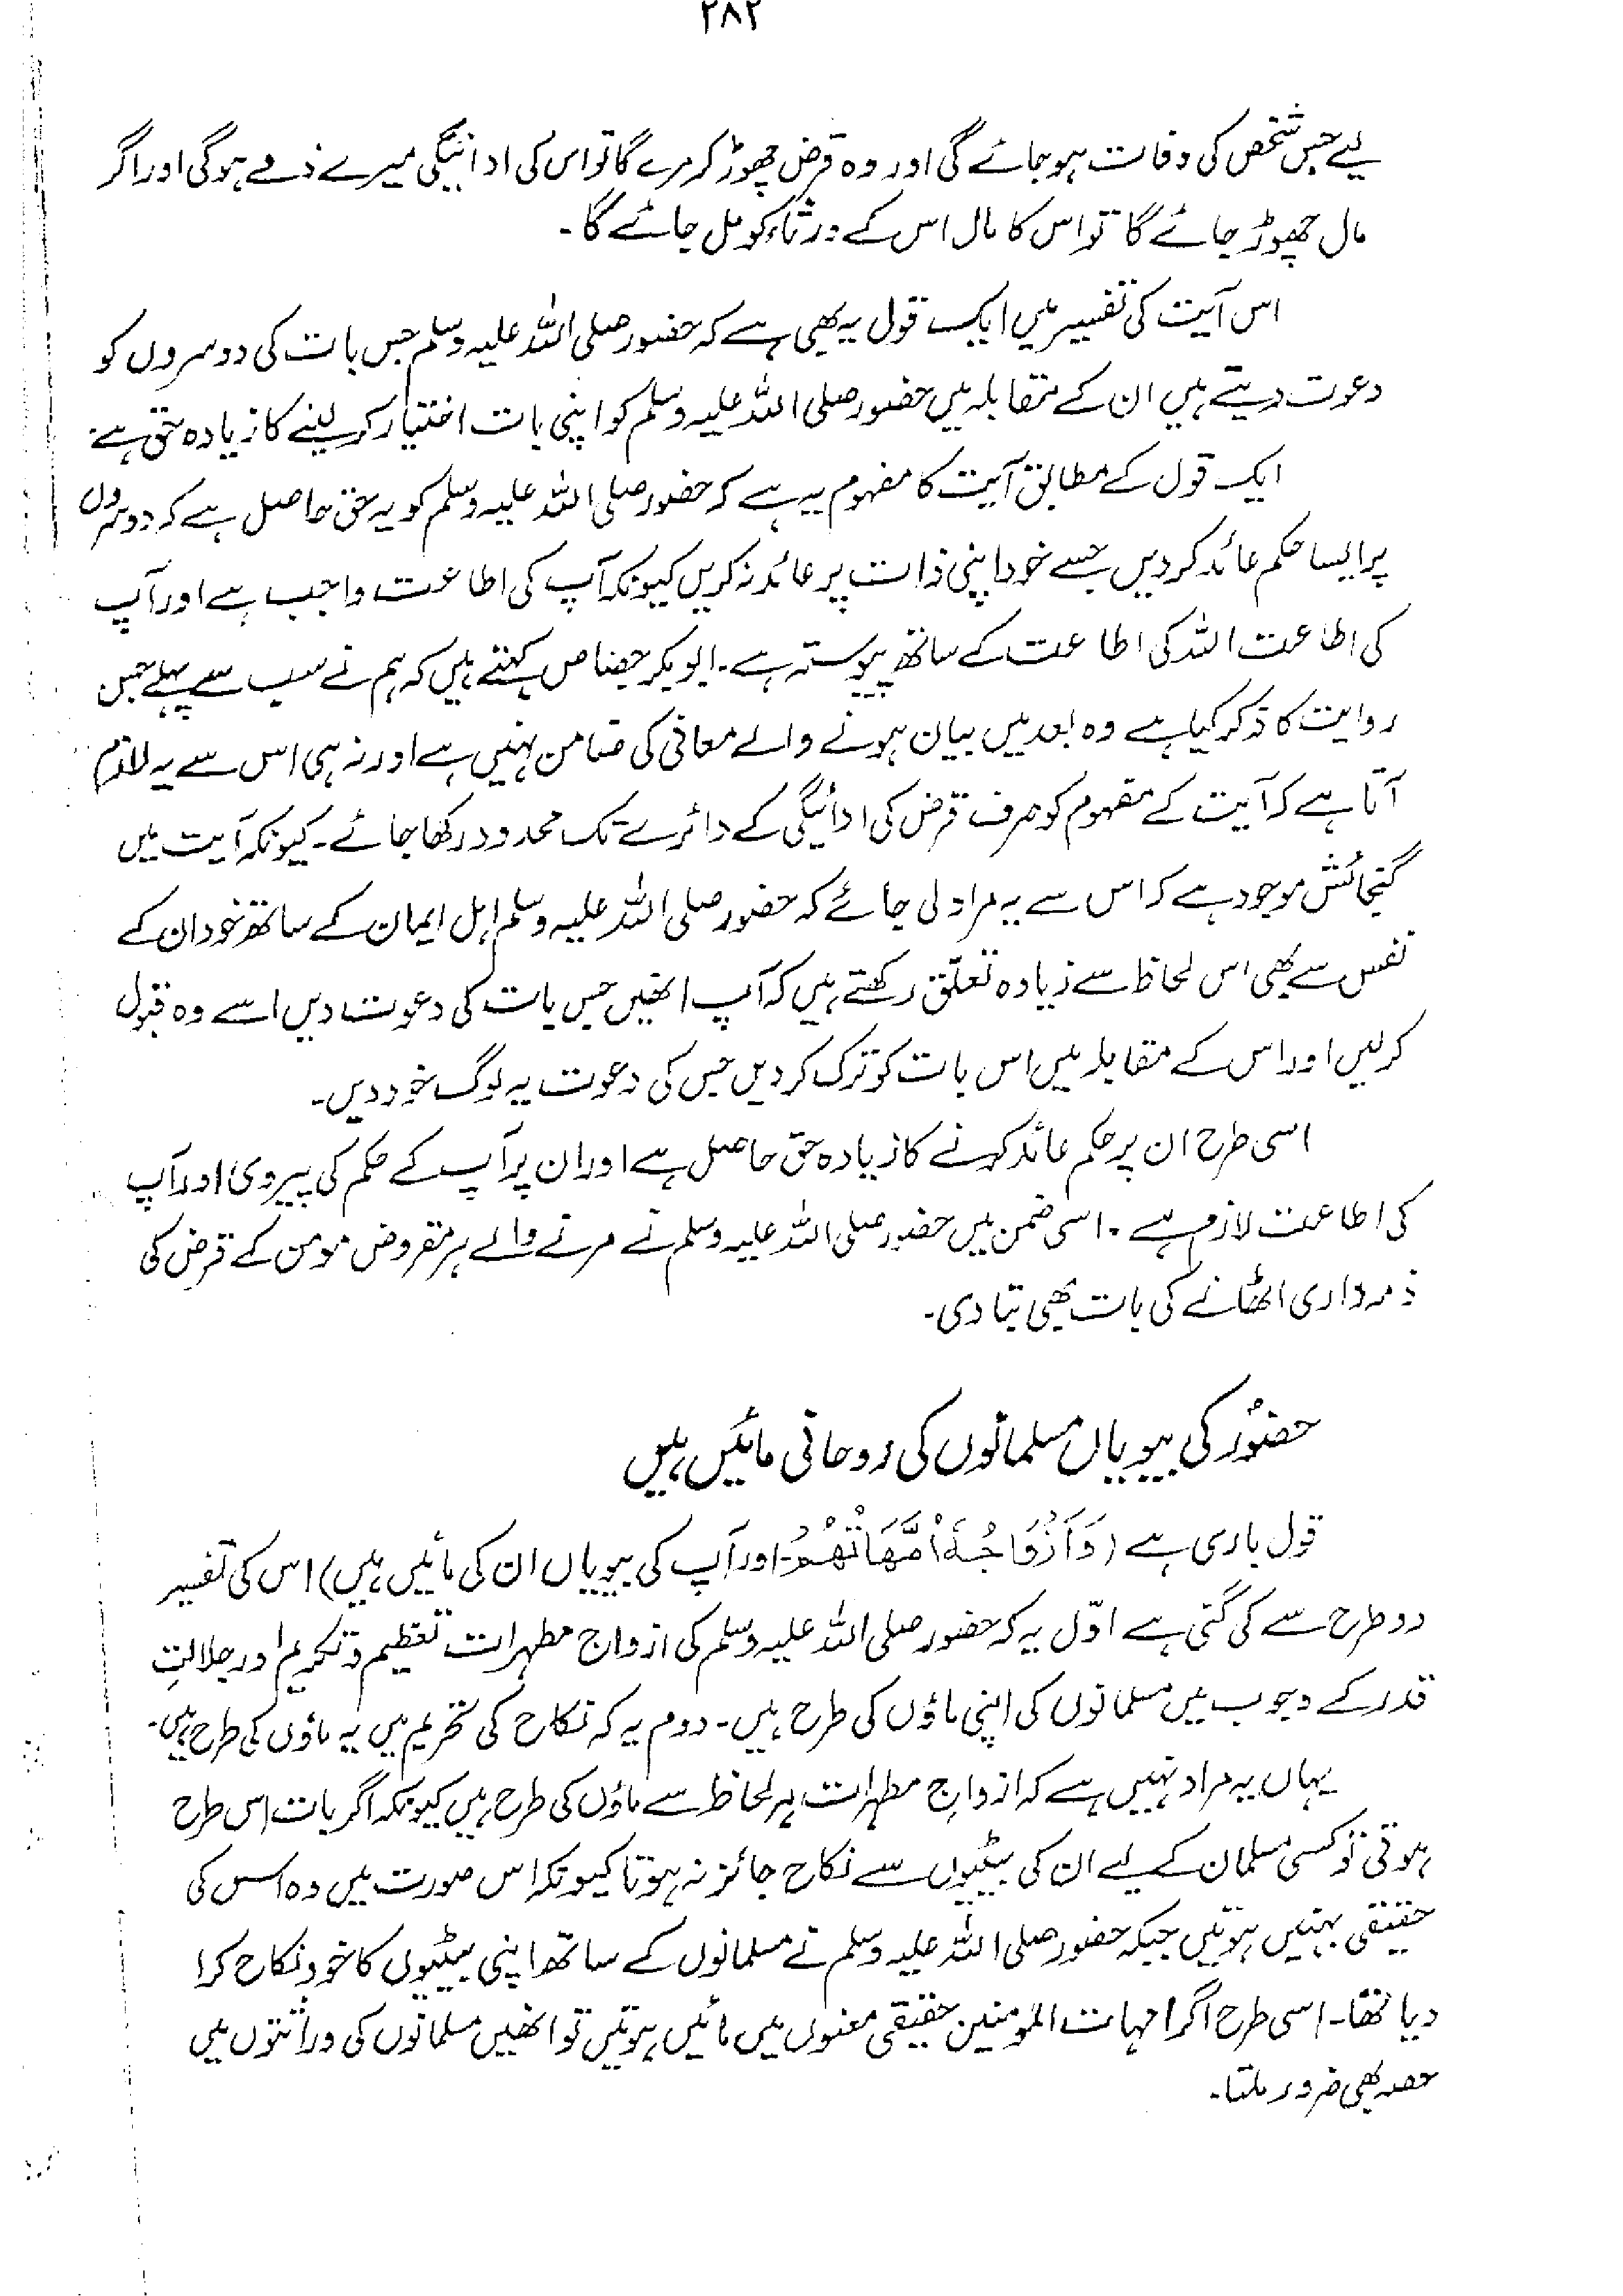 ۲۸۲
لیے جس شخص کی وفات ہو جائے گی اور وہ قرض چھوڑ کر مرے گا تو اس کی ادائیگی میرے ذمے ہوگی اور اگر
مال چھوڑ جائے گا تو اس کا مال اس کے ورثاء کو مل جائے گا۔
اس آیت کی تفسیر میں ایک قول یہ بھی ہے کہ حضور صلی اللہ علیہ وسلم جس بات کی دوسروں کو
دعوت دیتے ہیں ان کے مقابلہ میں حضور صلی اللہ علیہ وسلم کو اپنی بات اختیار کر لینے کا زیادہ حق ہے۔
ایک قول کے مطابق آیت کا مفہوم یہ ہے کہ حضور صلی اللہ علیہ وسلم کو یہ حق حاصل ہے کہ دوسروں
پر ایسا حکم عائد کر دیں جسے خود اپنی ذات پر عائد نہ کریں کیونکہ آپ کی اطاعت واجب ہے اور آپ
کی اطاعت اللہ کی اطاعت کے ساتھ پیوستہ ہے۔ ابوبکر جصاص کہتے ہیں کہ ہم نے سب سے پہلے جس
روایت کا ذکر کیا ہے وہ بعد میں بیان ہونے والے معانی کی ضامن نہیں ہے اور نہ ہی اس سے یہ لازم
آتا ہے کہ آیت کے مفہوم کو صرف قرض کی ادائیگی کے دائرے تک محدود رکھا جائے۔ کیونکہ آیت میں
گنجائش موجود ہے کہ اس سے یہ مراد لی جائے کہ حضور صلی اللہ علیہ وسلم اہل ایمان کے ساتھ خود ان کے
نفس سے بھی اس لحاظ سے زیادہ تعلّق رکھتے ہیں کہ آپ انھیں جس بات کی دعوت دیں اسے وہ قبول
کرلیں اور اس کے مقابلہ میں اس بات کو ترک کر دیں جس کی دعوت یہ لوگ خود دیں۔
اسی طرح ان پر حکم عائد کرنے کا زیادہ حق حاصل ہے اور ان پر آپ کے حکم کی پیروی اور آپ
کی اطاعت لازم ہے۔ اسی ضمن میں حضور صلی اللہ علیہ وسلم نے مرنے والے ہر مقروض مومن کے قرض کی
ذمہ داری اٹھانے کی بات بھی بتا دی۔
حضورؐ کی بیویاں مسلمانوں کی روحانی مائیں ہیں
قول باری ہے (وَاَزْوَاجُهٗ اُمَّهَاتُهُمْ۔ اور آپ کی بیویاں ان کی مائیں ہیں) اس کی تفسیر
دو طرح سے کی گئی ہے اوّل یہ کہ حضور صلی اللہ علیہ وسلم کی ازواج مطہرات تعظیم و تکریم اور جلالتِ
قدر کے وجوب میں مسلمانوں کی اپنی ماؤں کی طرح ہیں۔ دوم یہ کہ نکاح کی تحریم میں یہ ماؤں کی طرح ہیں۔
یہاں یہ مراد نہیں ہے کہ ازواجِ مطہرات ہر لحاظ سے ماؤں کی طرح ہیں کیونکہ اگر بات اس طرح
ہوتی تو کسی مسلمان کے لیے ان کی بیٹیوں سے نکاح جائز نہ ہوتا کیونکہ اس صورت میں وہ اس کی
حقیقی بہنیں ہوتیں جبکہ حضور صلی اللہ علیہ وسلم نے مسلمانوں کے ساتھ اپنی بیٹیوں کا خود نکاح کرا
دیا تھا۔ اسی طرح اگر امہات المومنین حقیقی معنوں میں مائیں ہوتیں تو انھیں مسلمانوں کی وراثتوں میں
حصہ بھی ضرور ملتا۔